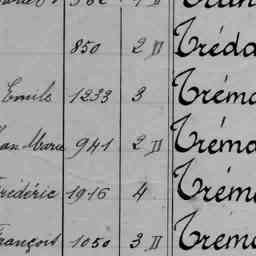 850 2 II Tréda
Emile 1233 3 Tréma
Jean Marie 941 2 II Tréma
Frédéric 1916 4 Tréma
François 1050 3 II Tréma